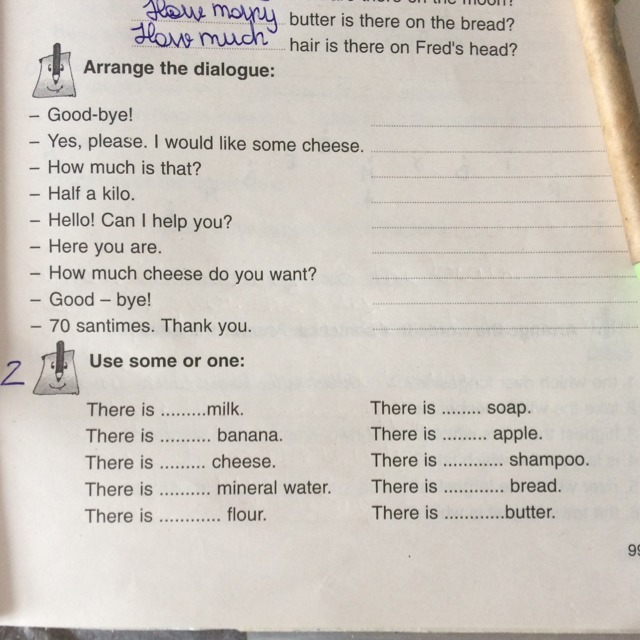 on the moon?
How many butter is there on the bread?
How much hair is there on Fred's head?
Arrange the dialogue:
– Good-bye!
– Yes, please. I would like some cheese.
– How much is that?
– Half a kilo.
– Hello! Can I help you?
– Here you are.
– How much cheese do you want?
– Good – bye!
– 70 santimes. Thank you.
2 Use some or one:
There is .........milk. There is ........ soap.
There is .......... banana. There is ......... apple.
There is .......... cheese. There is ............ shampoo.
There is .......... mineral water. There is ............ bread.
There is ............ flour. There is ............butter.